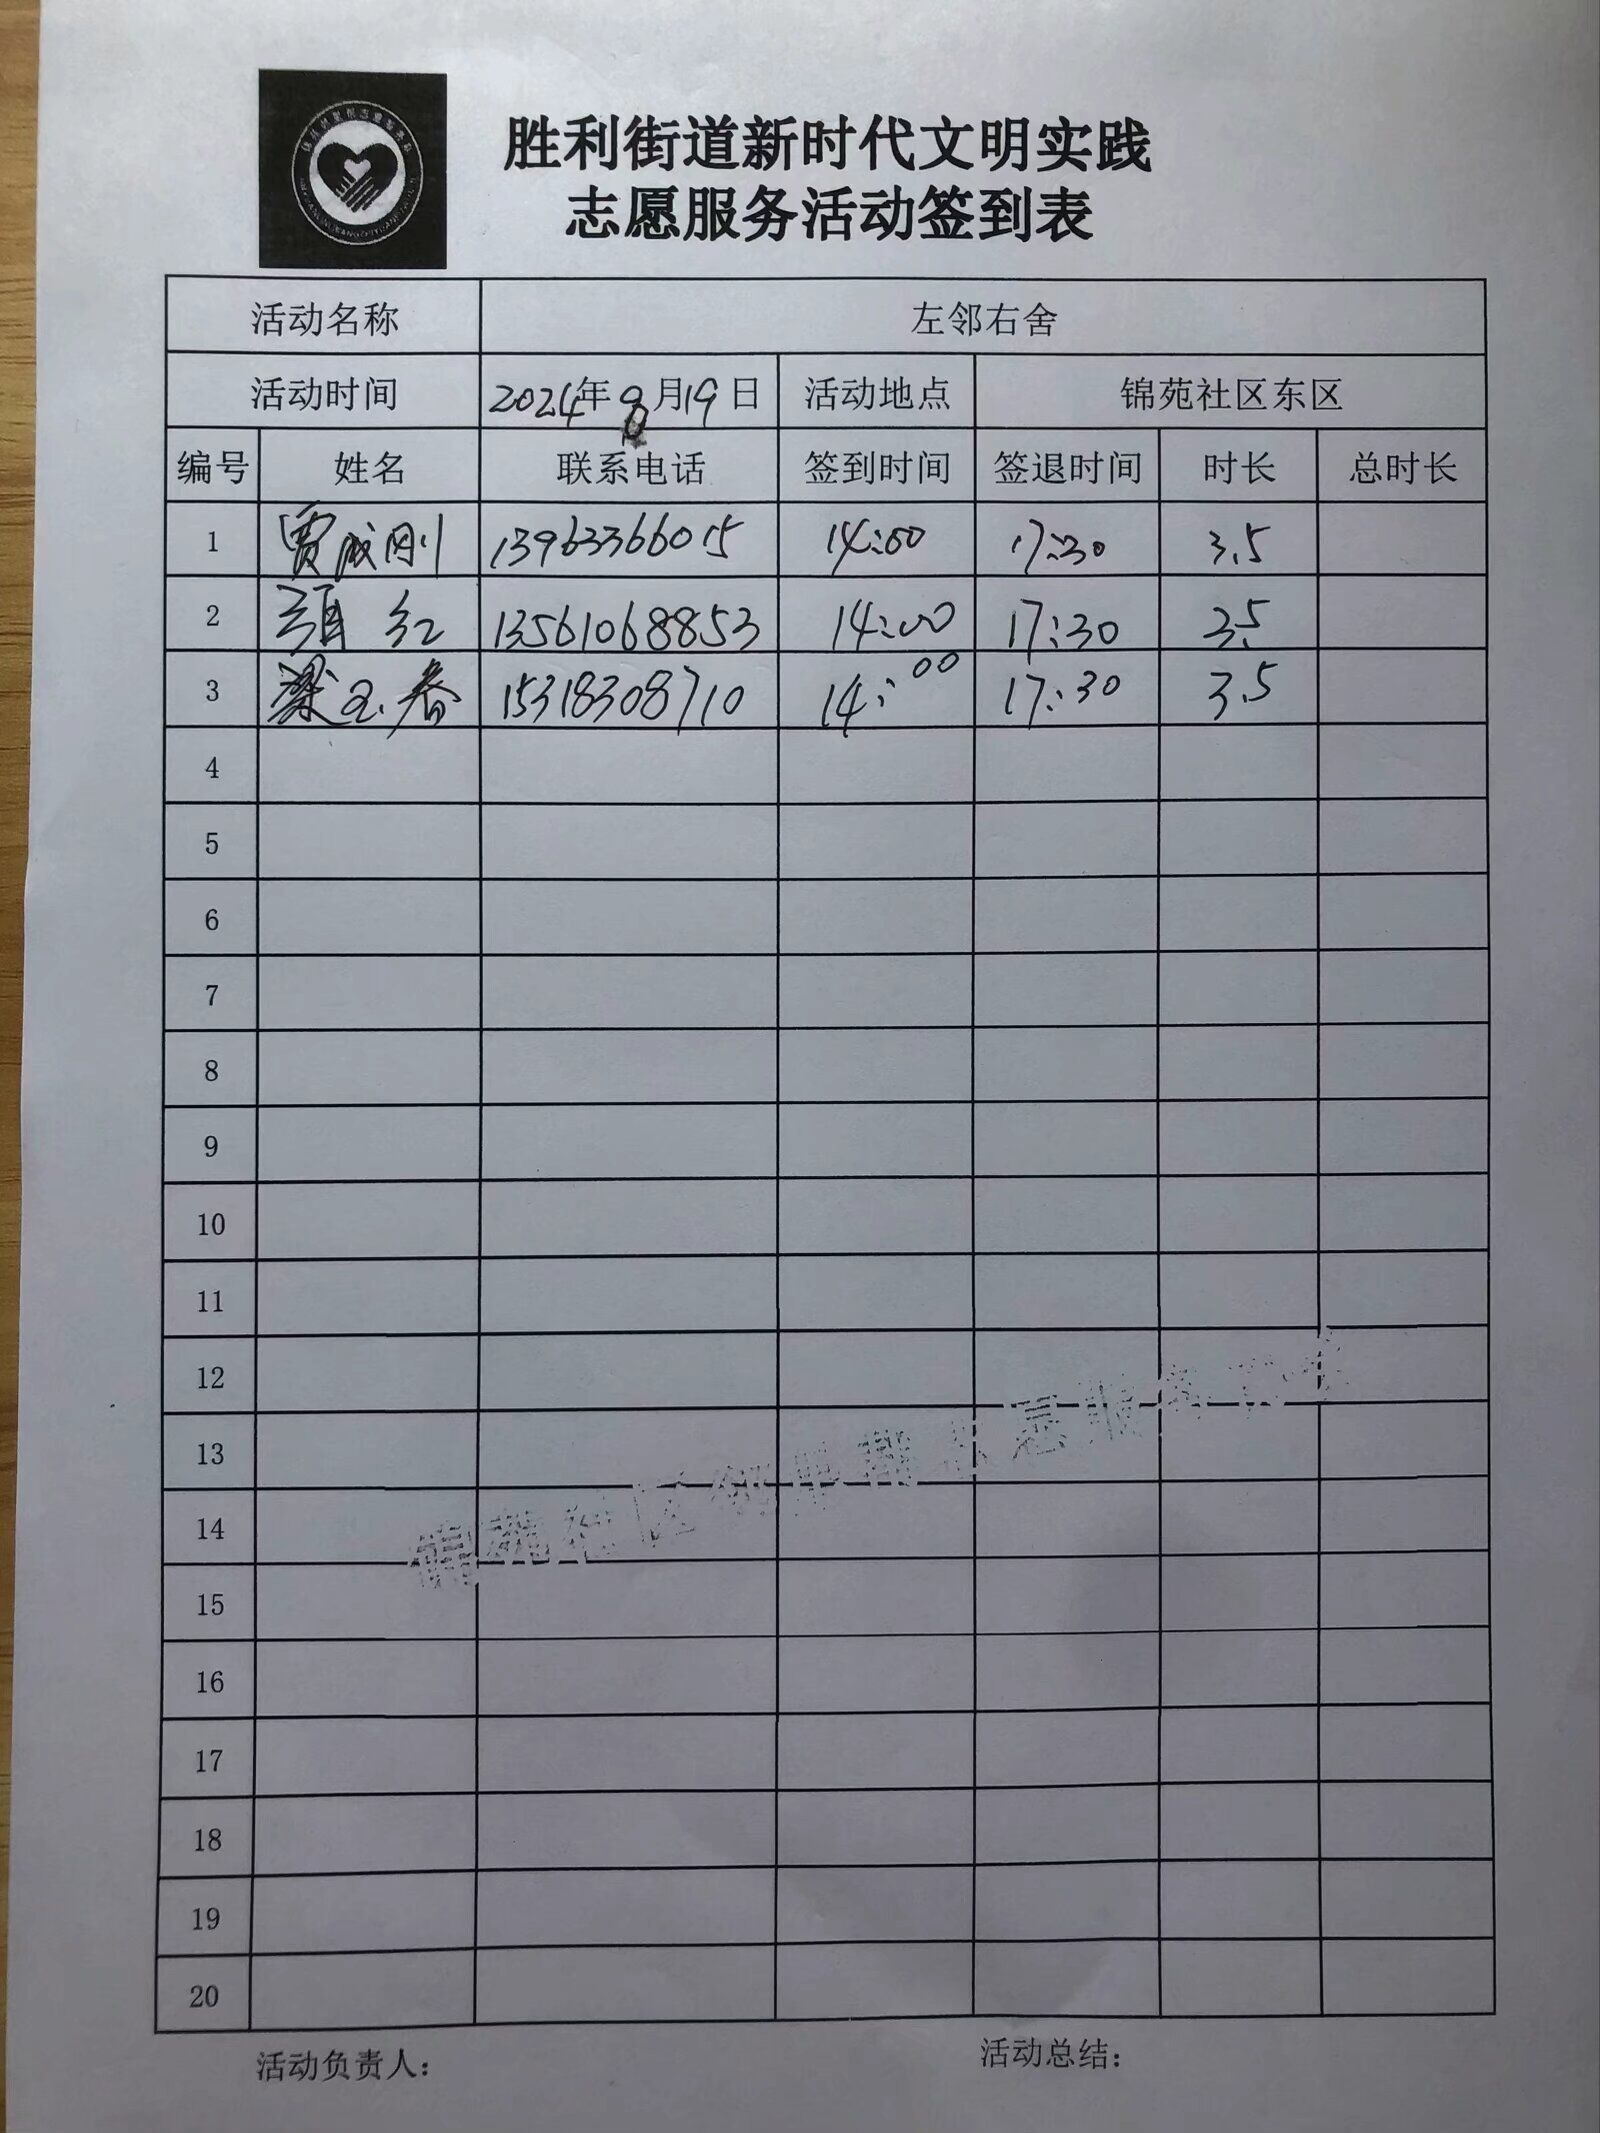 胜利街道新时代文明实践
志愿服务活动签到表
活动名称 左邻右舍
活动时间 2024年8月19日 活动地点 锦苑社区东区
编号 姓名 联系电话 签到时间 签退时间 时长 总时长
1 贾成刚 13963366015 14:00 17:30 3.5
2 红 13561068853 14:00 17:30 3.5
3 梁玉春 15318308710 14:00 17:30 3.5
4
5
6
7
8
9
10
11
12
13
14
15
16
17
18
19
20
锦苑社区邻里帮志愿服务
活动负责人：
活动总结：